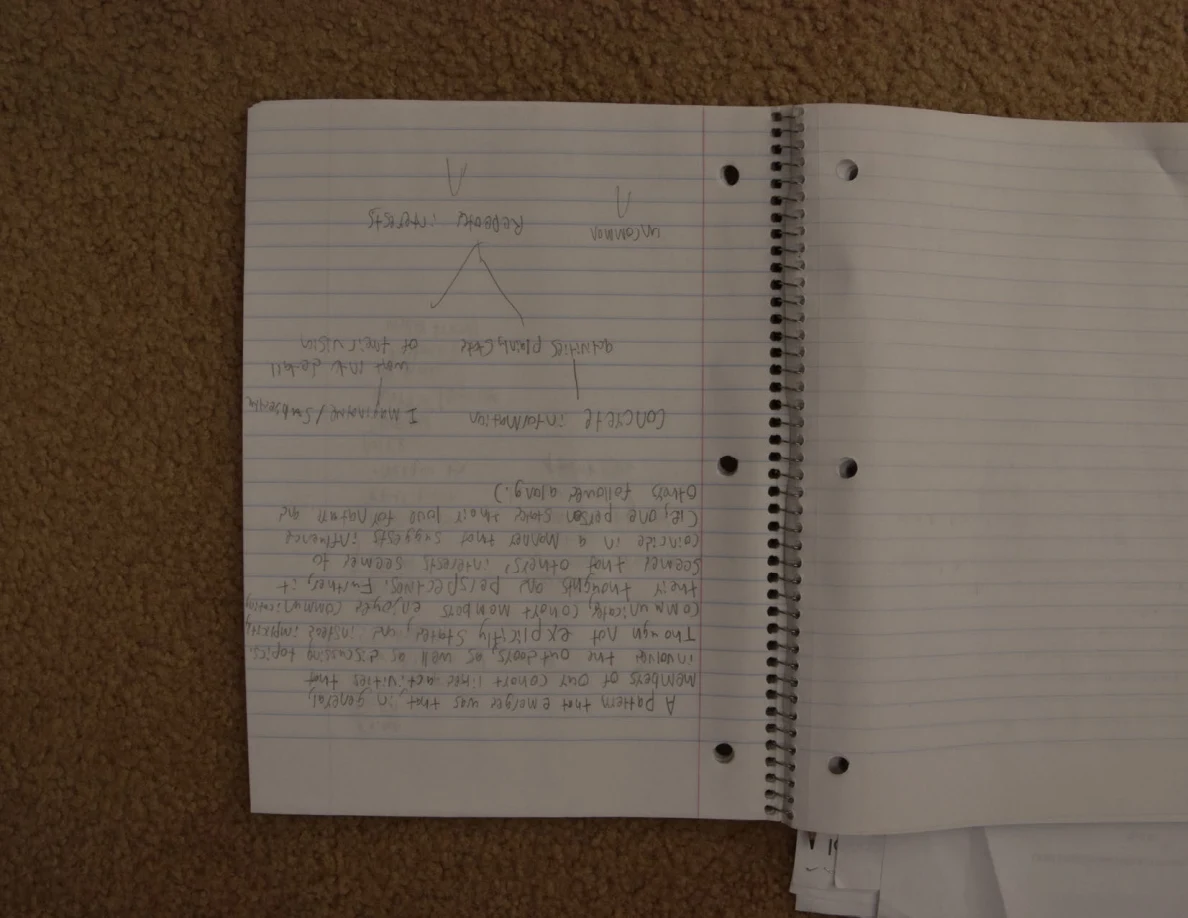 A pattern that emerged was that, in general,
members of our cohort liked activities that
involved the outdoors, as well as discussing topics.
Though not explicitly stated, and instead
communicated, cohort members enjoyed communicating
their thoughts and perspectives. Further, it
seemed that others' interests seemed to
coincide in a manner that suggests influence
(ie, one person stated their love for nature and
others followed along.)
Concrete information Imaginative/Subjective
activities plain, want more detail
of their vision
uncommon Repeated interests